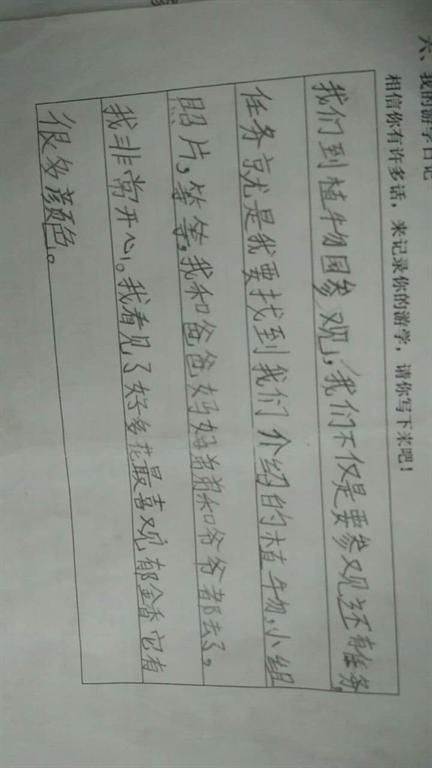 六、我的游学日记
相信你有许多话，来记录你的游学，请你写下来吧！
我们到植物园参观，我们不仅是要参观还有任务，
任务就是我要找到我们介绍的植物，小组
照片，等等，我和爸爸妈妈弟弟和爷爷都去了。
我非常开心。我看见了好多花最喜观郁金香它有
很多颜色。